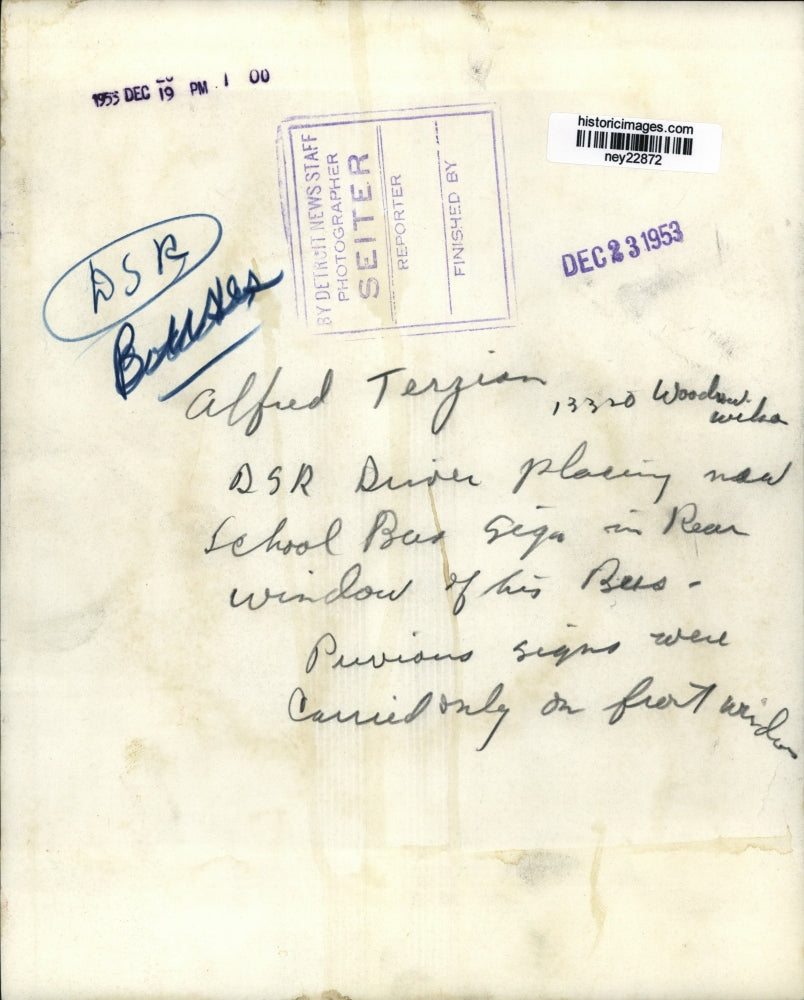 1953 DEC 19 PM 1 00
historicimages.com
ney22872
BY DETROIT NEWS STAFF
PHOTOGRAPHER
SEITER
REPORTER
FINISHED BY
DEC 23 1953
DSR
Busses
Alfred Terzian 13320 Woodrow
Wilson
DSR Driver placing new
School Bus sign in Rear
window of his Bus -
Previous signs were
Carried only on front window